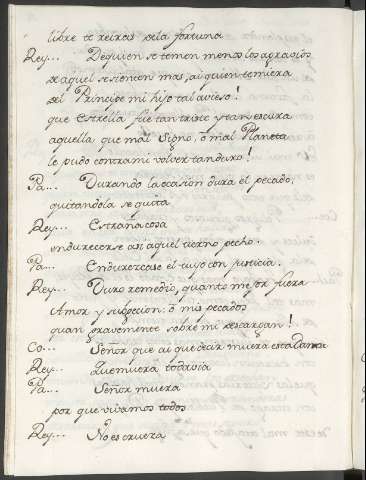 libre te reiras dela fortuna
Rey... Dequien se temen menos los agravios
de aquel se sienten mas, ai quien temiera
del Principe mi hijo tal avieso!
que Estrella fue tan triste y tan escura
aquella que mal Signo, ò mal Planeta
le pudo contra mi volver tan duro!
Pa... Durando la ocasion dura el pecado,
quitandola se quita
Rey... Estraña cosa
endurecerse asi aquel tierno pecho.
Pa... Endurezcase el tuyo con justicia.
Rey... Duro remedio, quanto mejor fuera
Amor y sugecion: ò mis pecados
quan gravemente sobre mi descargan!
Co... Señor que ai que decir muera esta Dama
Rey... Que muera todavia
Pa... Señor muera
por que vivamos todos
Rey... No es crueza